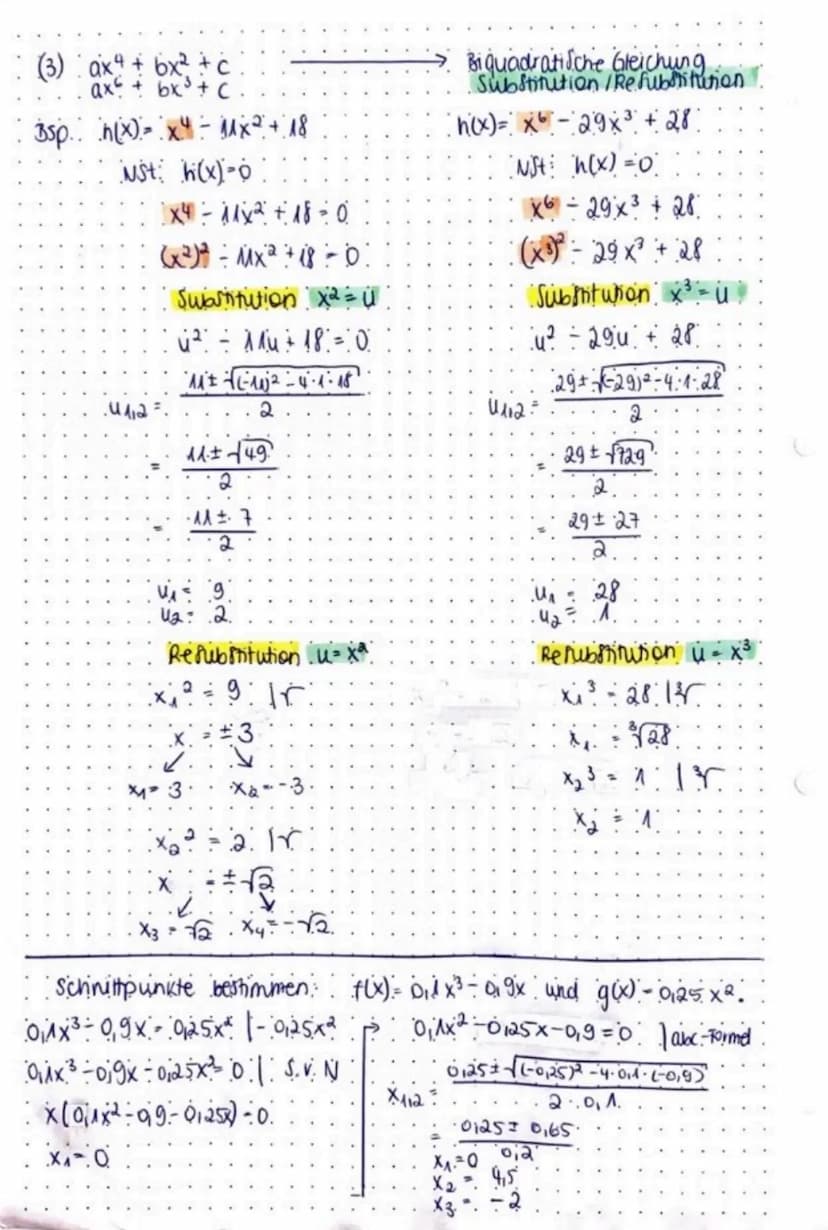 (3) ax⁴ + bx² + c → Biquadratische Gleichung
ax⁶ + bx³ + c Substitution / Resubstitution
Bsp. h(x) = x⁴ - 11x² + 18
NSt: h(x) = 0
x⁴ - 11x² + 18 = 0
(x²)² - 11x² + 18 = 0
Substitution x² = u
u² - 11u + 18 = 0
u₁,₂ = (11 ± √((-11)² - 4·1·18))/2
= (11 ± √49)/2
= (11 ± 7)/2
u₁ = 9
u₂ = 2
Resubstitution u = x²
x₁² = 9 |√
x = ±3
↙ ↘
x₁ = 3 x₂ = -3
x₂² = 2 |√
x = ±√2
↙ ↘
x₃ = √2 x₄ = -√2
h(x) = x⁶ - 29x³ + 28
NSt: h(x) = 0
x⁶ - 29x³ + 28
(x³)² - 29x³ + 28
Substitution x³ = u
u² - 29u + 28
u₁,₂ = (29 ± √((-29)² - 4·1·28))/2
= (29 ± √729)/2
= (29 ± 27)/2
u₁ = 28
u₂ = 1
Resubstitution u = x³
x₁³ = 28 |∛
x₁ = ∛28
x₂³ = 1 |∛
x₂ = 1
Schnittpunkte bestimmen: f(x) = 0,1x³ - 0,9x und g(x) = 0,25x².
0,1x³ - 0,9x = 0,25x² | - 0,25x²
0,1x³ - 0,9x - 0,25x² = 0 | S.v.N
x(0,1x² - 0,9 - 0,25x) = 0
x₁ = 0
→ 0,1x² - 0,25x - 0,9 = 0 | abc-Formel
x₁,₂ = (0,25 ± √((-0,25)² - 4·0,1·(-0,9)))/(2·0,1)
= (0,25 ± 0,65)/0,2
x₁ = 0
x₂ = 4,5
x₃ = -2